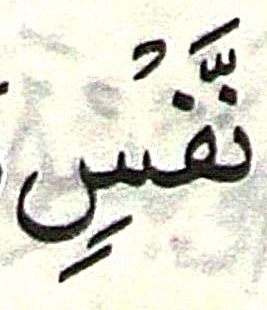 نَّفْسٍ